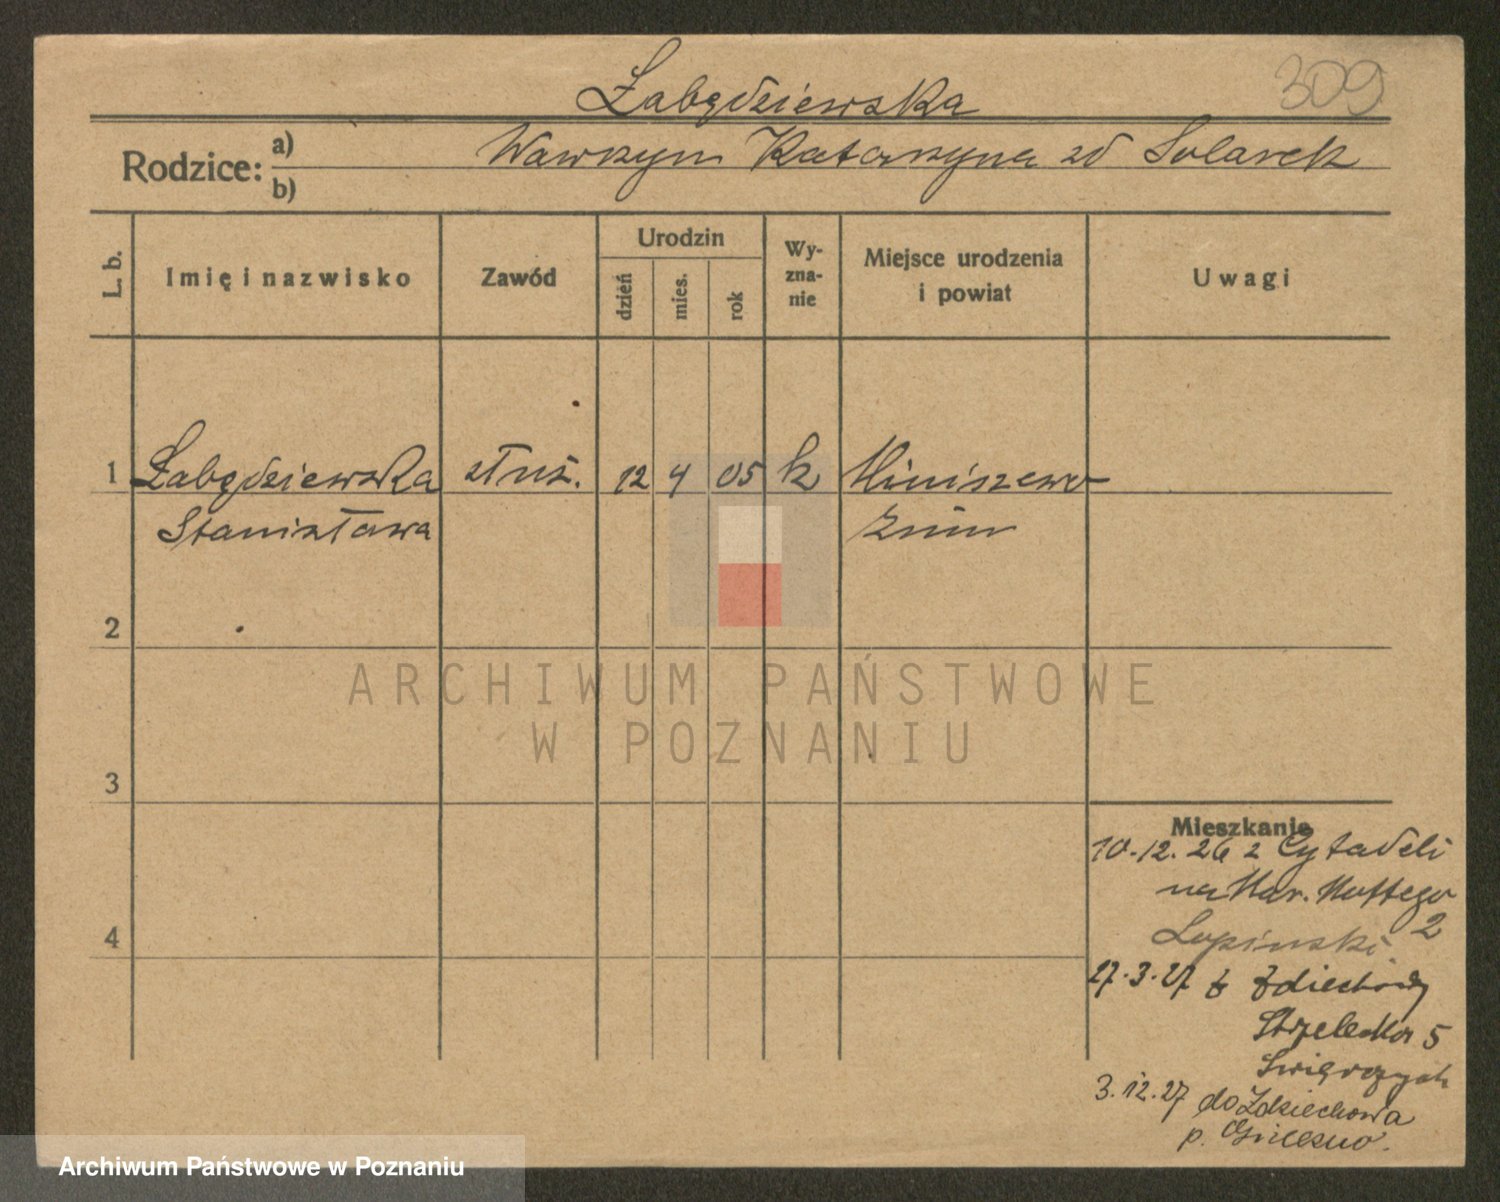 309
Łabędziewska
Rodzice: a) b)
Wawrzyn Katarzyna zd Solarek
L. b.
Imię i nazwisko
Zawód
Urodzin
dzień
mies.
rok
Wy-
zna-
nie
Miejsce urodzenia
i powiat
Uwagi
1 Łabędziewska służ. 12 4 05 k
Stanisława Żnin
2
3
4
Mieszkanie
10.12.26 z Cytadeli
na Mar. 2
17.3.27 z Zdiechowy
Strzelecka 5
3.12.27 do Zdziechowa
p. Gniezno.
ARCHIWUM PAŃSTWOWE
W POZNANIU
Archiwum Państwowe w Poznaniu